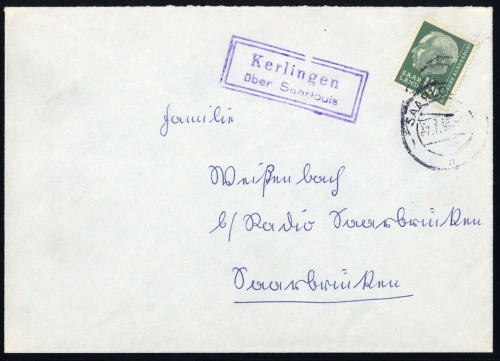 Kerlingen
über Saarlouis
SAAR
LAND
Familie
Weißenbach
b/ Radio Saarbrücken
Saarbrücken